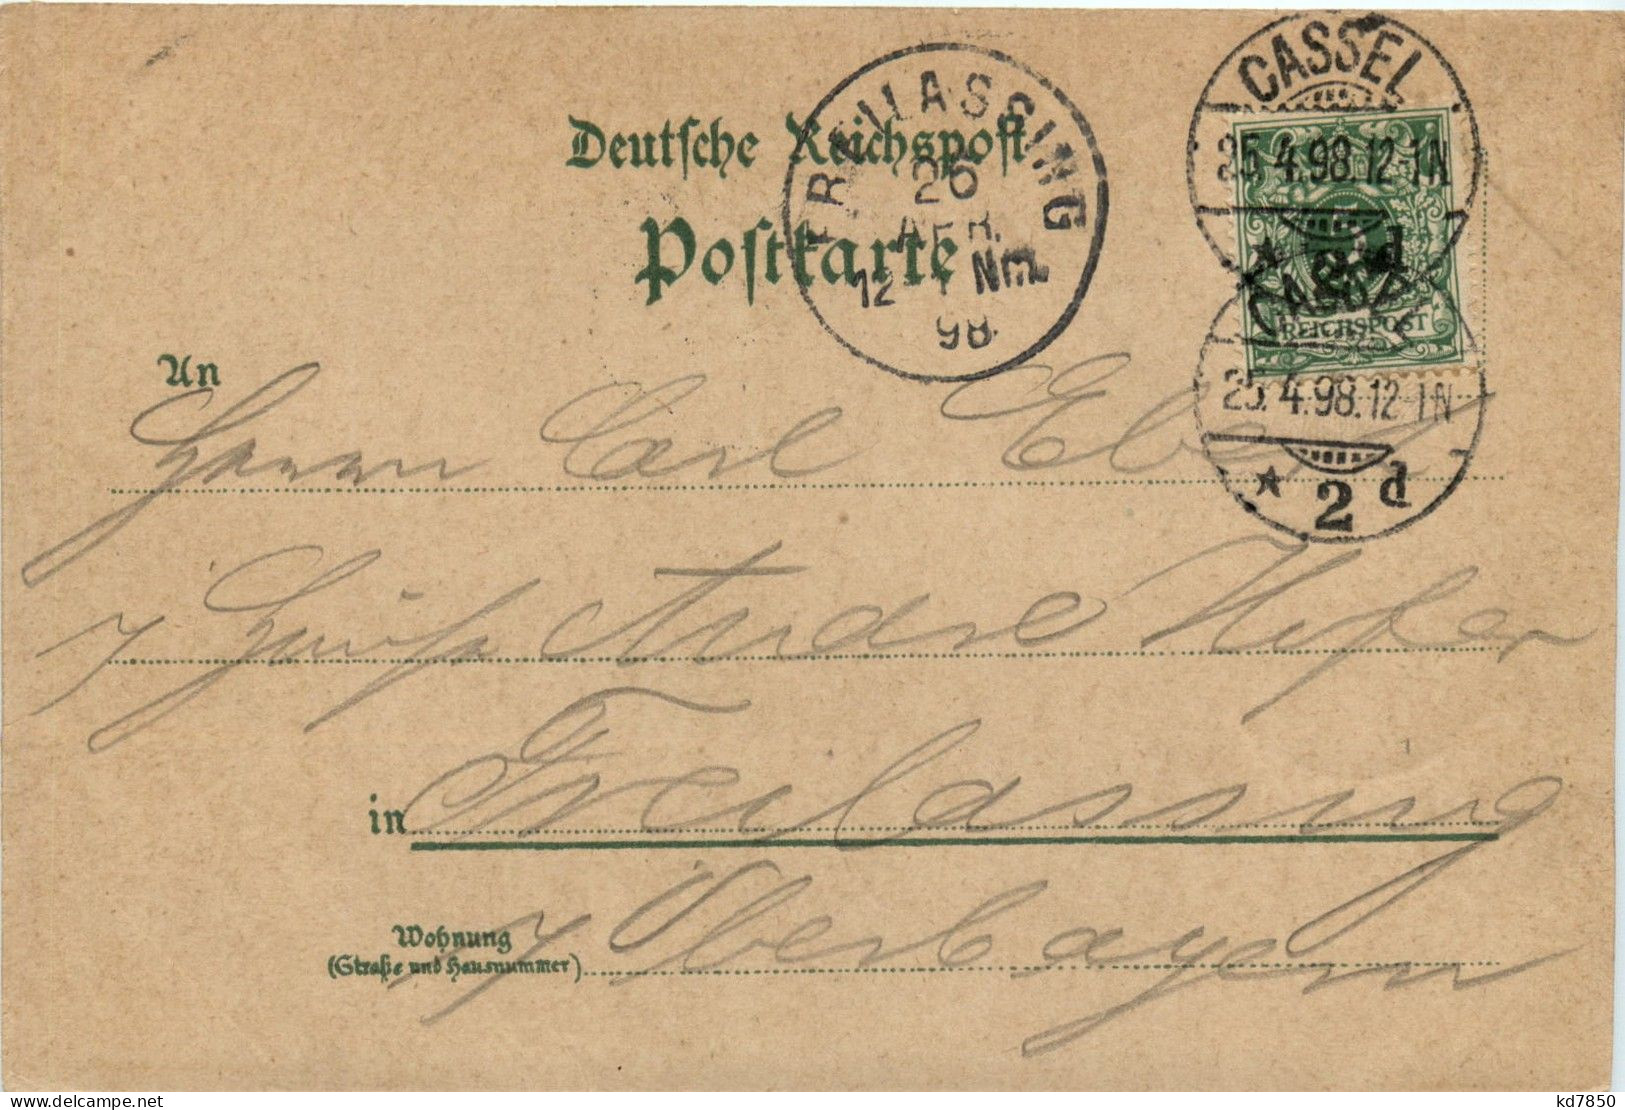 Deutsche Reichspost
Postkarte
FREILASSING
26
APR.
12-1 Nm.
98
CASSEL
25.4.98.12-1N
* 2 d
REICHSPOST
CASSEL
25.4.98.12-1N
* 2 d
An
Herrn Carl Ebert
Andre Hofer
in Freilassing
Wohnung
(Straße und Hausnummer)
Oberbayern
kd7850